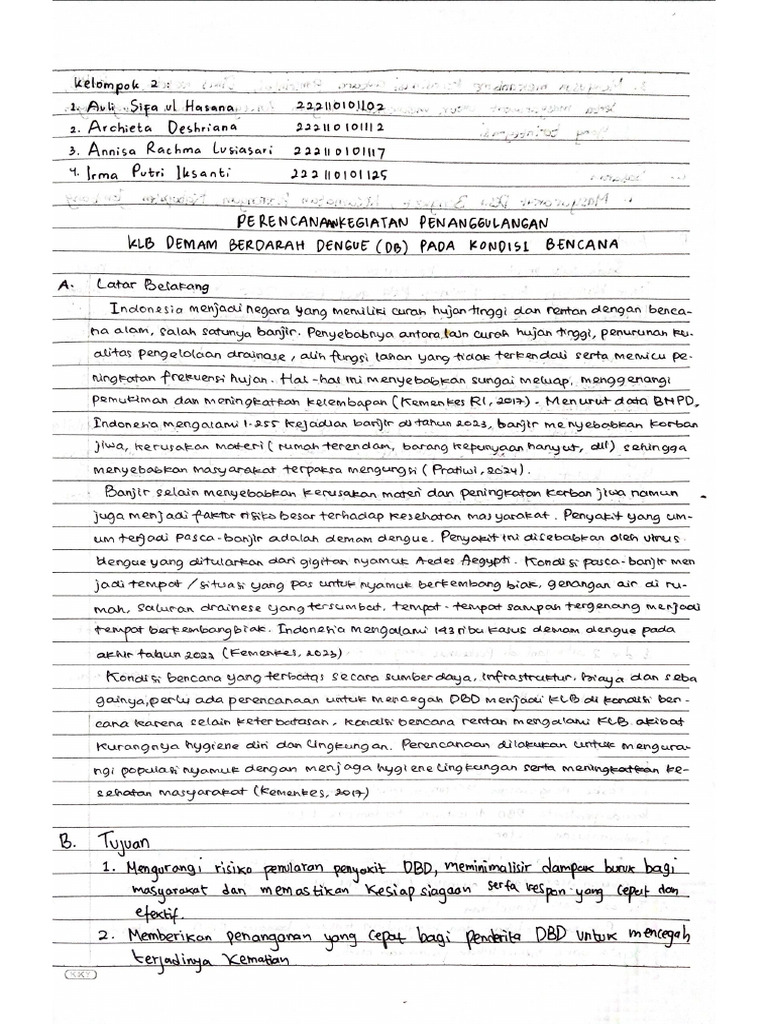 Kelompok 2 :
1. Auli Sifa ul Hasana 222110101102
2. Archieta Deshriana 222110101112
3. Annisa Rachma Lusiasari 222110101117
4. Irma Putri Iksanti 222110101125
PERENCANAAN KEGIATAN PENANGGULANGAN
KLB DEMAM BERDARAH DENGUE (DB) PADA KONDISI BENCANA
A. Latar Belakang
Indonesia menjadi negara yang memiliki curah hujan tinggi dan rentan dengan benca-
na alam, salah satunya banjir. Penyebabnya antara lain curah hujan tinggi, penurunan ku-
alitas pengelolaan drainase, alih fungsi lahan yang tidak terkendali serta memicu pe-
ningkatan frekuensi hujan. Hal-hal ini menyebabkan sungai meluap, menggenangi
pemukiman dan meningkatkan kelembapan (Kemenkes RI, 2017). Menurut data BNPD,
Indonesia mengalami 1.255 kejadian banjir di tahun 2023, banjir menyebabkan korban
jiwa, kerusakan materi (rumah terendam, barang kepunyaan hanyut, dll) sehingga
menyebabkan masyarakat terpaksa mengungsi (Pratiwi, 2024).
Banjir selain menyebabkan kerusakan materi dan peningkatan korban jiwa namun
juga menjadi faktor risiko besar terhadap kesehatan masyarakat. Penyakit yang um-
um terjadi pasca-banjir adalah demam dengue. Penyakit ini disebabkan oleh virus
dengue yang ditularkan dari gigitan nyamuk Aedes Aegypti. Kondisi pasca-banjir men
jadi tempat / situasi yang pas untuk nyamuk berkembang biak, genangan air di ru-
mah, saluran drainese yang tersumbat, tempat-tempat sampah tergenang menjadi
tempat berkembangbiak. Indonesia mengalami 143 ribu kasus demam dengue pada
akhir tahun 2022 (Kemenkes, 2023)
Kondisi bencana yang terbatas secara sumber daya, infrastruktur, biaya dan seba
gainya, perlu ada perencanaan untuk mencegah DBD menjadi KLB di kondisi ben-
cana karena selain keterbatasan, kondisi bencana rentan mengalami KLB akibat
kurangnya hygiene diri dan lingkungan. Perencanaan dilakukan untuk mengura-
ngi populasi nyamuk dengan menjaga hygiene lingkungan serta meningkatkan ke-
sehatan masyarakat (Kemenkes, 2017)
B. Tujuan
1. Mengurangi risiko penularan penyakit DBD, meminimalisir dampak buruk bagi
masyarakat dan memastikan kesiapsiagaan serta respon yang cepat dan
efektif.
2. Memberikan penanganan yang cepat bagi penderita DBD untuk mencegah
terjadinya kematian
KKY